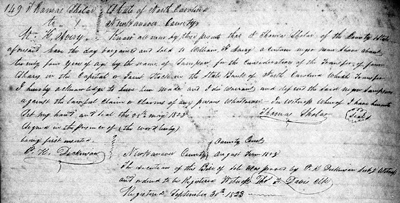 149 Thomas Sholar State of North Carolina
to New Hanover County
Wm. H. Avery Know all men by this presents that I Thomas Sholar of the County & State
have this day bargained and sold to William H. Avery a certain negro man slave about
thirty four years of age by the name of for the Consideration of the Transfer of four
Shares in the Capital or Joint Stock in the State Bank of North Carolina which Transfer
I hereby acknowledge to have been made and I do warrant and defend the said negro
against the lawful Claim or Claims of any persons whatsoever. In Witness whereof I have hereunto
Set my hand and Seal this May 1823
Signed in the presence of Thomas Sholar (Seal)
being first
P. K. Dickinson County Court
New Hanover County August Term 1823
The execution of this Bill of Sale was proved by P. K. Dickinson
and ordered to be Registered Witness Tho. F. Davis Clk
Registered September 1823